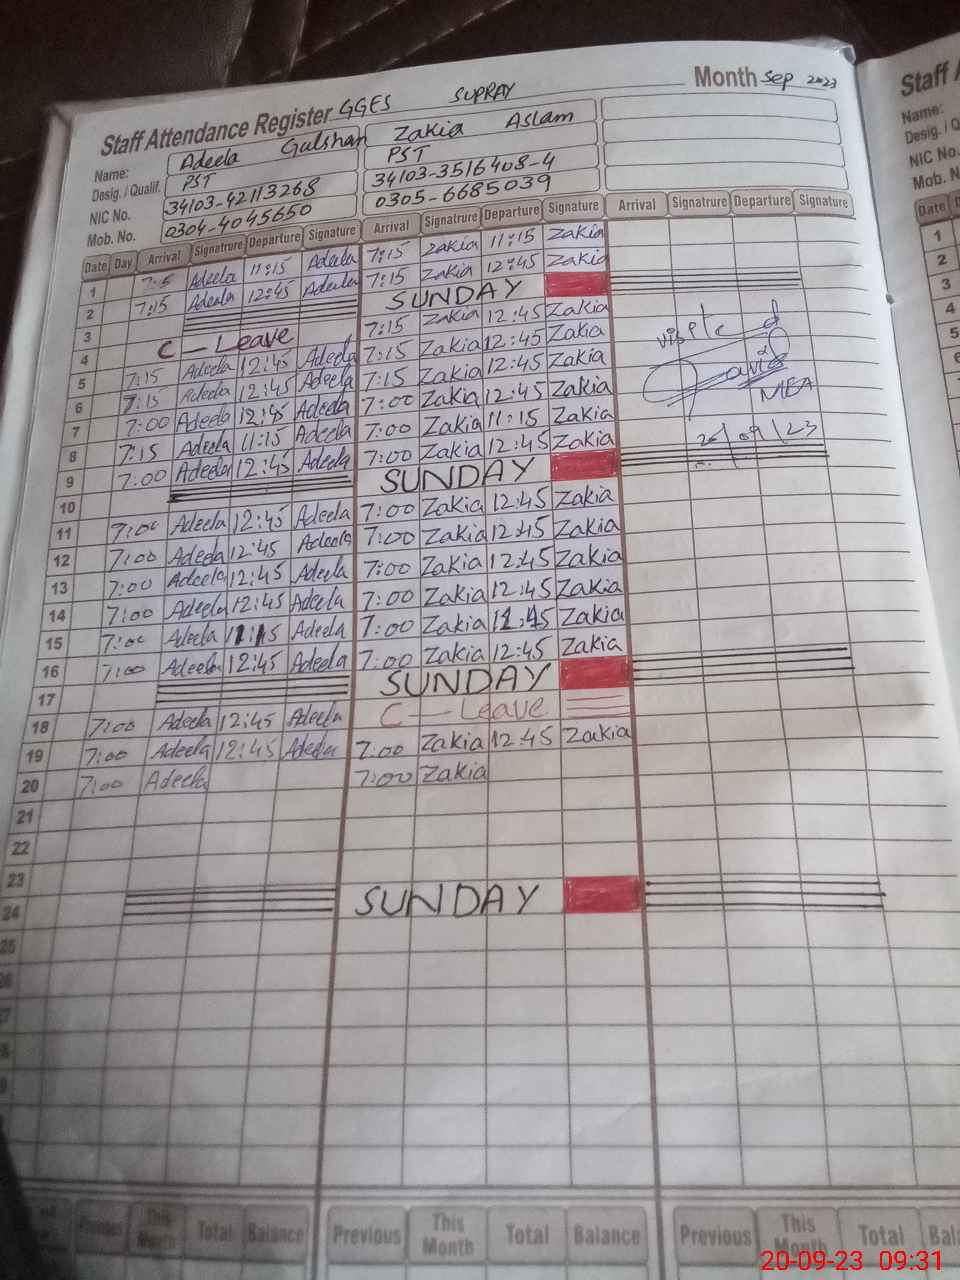 Staff Attendance Register GGES SUPRAY Month Sep 2023
Name: Adeela Gulshan Zakia Aslam
Desig. / Qualif. PST PST
NIC No. 34103-42113268 34103-3516408-4
Mob. No. 0304-4045650 0305-6685039
Date Day Arrival Signatrure Departure Signature Arrival Signatrure Departure Signature Arrival Signatrure Departure Signature
1 Adeela 11:15 Adeela 7:15 Zakia 11:15 Zakia
2 7:15 Adeela 12:45 Adeela 7:15 Zakia 12:45 Zakia
3 SUNDAY
4 C - Leave 7:15 Zakia 12:45 Zakia
5 7:15 Adeela 12:45 Adeela 7:15 Zakia 12:45 Zakia
6 7:15 Adeela 12:45 Adeela 7:15 Zakia 12:45 Zakia
7 7:00 Adeela 12:45 Adeela 7:00 Zakia 12:45 Zakia
8 7:15 Adeela 11:15 Adeela 7:00 Zakia 11:15 Zakia
9 7:00 Adeela 12:45 Adeela 7:00 Zakia 12:45 Zakia
10 SUNDAY
11 7:00 Adeela 12:45 Adeela 7:00 Zakia 12:45 Zakia
12 7:00 Adeela 12:45 Adeela 7:00 Zakia 12:45 Zakia
13 7:00 Adeela 12:45 Adeela 7:00 Zakia 12:45 Zakia
14 7:00 Adeela 12:45 Adeela 7:00 Zakia 12:45 Zakia
15 7:00 Adeela 11:15 Adeela 7:00 Zakia Zakia
16 7:00 Adeela 12:45 Adeela 7:00 Zakia 12:45 Zakia
17 SUNDAY
18 7:00 Adeela 12:45 Adeela C - Leave
19 7:00 Adeela 12:45 Adeela 7:00 Zakia 12:45 Zakia
20 7:00 Adeela 7:00 Zakia
21
22
23
24 SUNDAY
25
visited
MEA
20/09/23
Previous This Month Total Balance Previous This Month Total Balance Previous This Month Total
Staff
Name:
Desig. /
NIC No.
Mob. N
Date
1
2
3
4
5
20-09-23 09:31